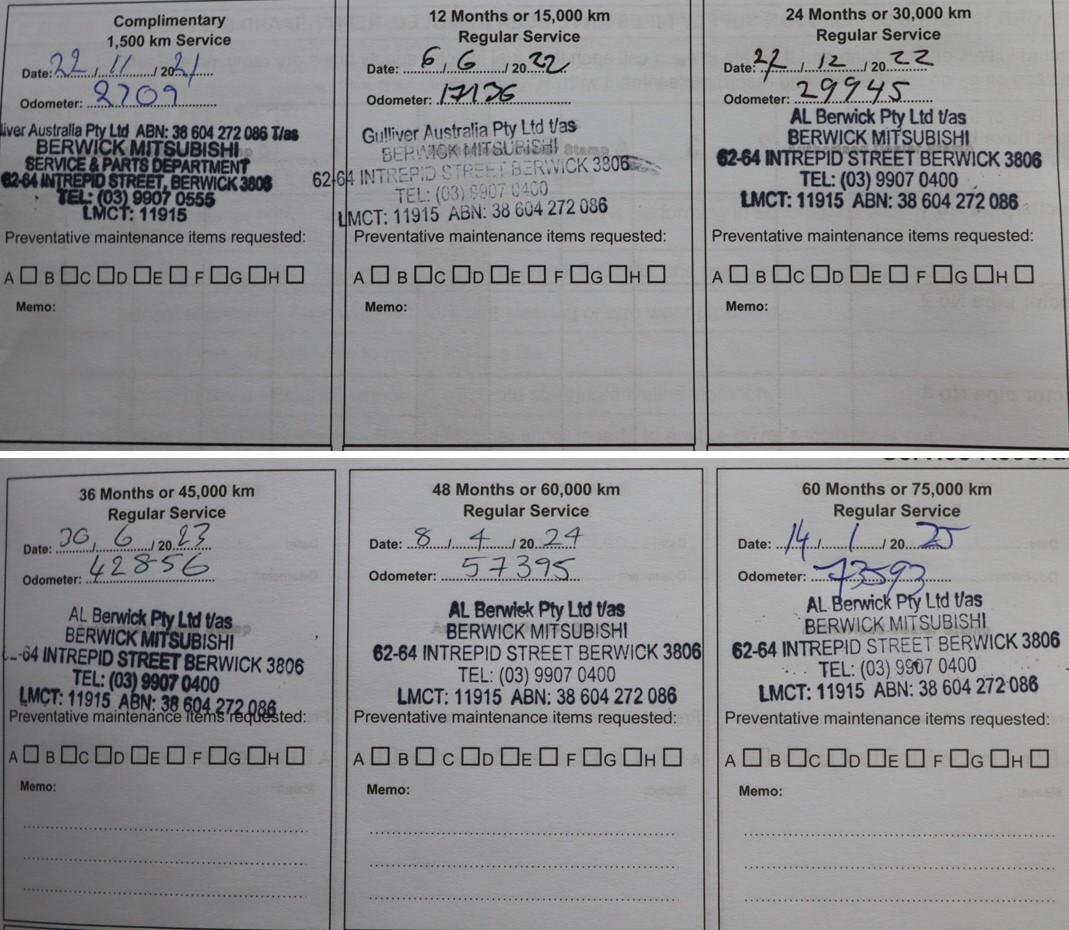 Complimentary
1,500 km Service
Date: 22 / 11 / 2021
Odometer: 2709
liver Australia Pty Ltd ABN: 38 604 272 086 T/as
BERWICK MITSUBISHI
SERVICE & PARTS DEPARTMENT
62-64 INTREPID STREET, BERWICK 3806
TEL: (03) 9907 0555
LMCT: 11915
Preventative maintenance items requested:
A B C D E F G H
Memo:
12 Months or 15,000 km
Regular Service
Date: 6 / 6 / 2022
Odometer: 17136
Gulliver Australia Pty Ltd t/as
BERWICK MITSUBISHI
62-64 INTREPID STREET BERWICK 3806
TEL: (03) 9907 0400
LMCT: 11915 ABN: 38 604 272 086
Preventative maintenance items requested:
A B C D E F G H
Memo:
24 Months or 30,000 km
Regular Service
Date: 22 / 12 / 2022
Odometer: 29945
AL Berwick Pty Ltd t/as
BERWICK MITSUBISHI
62-64 INTREPID STREET BERWICK 3806
TEL: (03) 9907 0400
LMCT: 11915 ABN: 38 604 272 086
Preventative maintenance items requested:
A B C D E F G H
Memo:
36 Months or 45,000 km
Regular Service
Date: 30 / 6 / 2023
Odometer: 42856
AL Berwick Pty Ltd t/as
BERWICK MITSUBISHI
-64 INTREPID STREET BERWICK 3806
TEL: (03) 9907 0400
LMCT: 11915 ABN: 38 604 272 086
Preventative maintenance items requested:
A B C D E F G H
Memo:
48 Months or 60,000 km
Regular Service
Date: 8 / 4 / 2024
Odometer: 57395
AL Berwick Pty Ltd t/as
BERWICK MITSUBISHI
62-64 INTREPID STREET BERWICK 3806
TEL: (03) 9907 0400
LMCT: 11915 ABN: 38 604 272 086
Preventative maintenance items requested:
A B C D E F G H
Memo:
60 Months or 75,000 km
Regular Service
Date: 14 / 1 / 2025
Odometer: 73593
AL Berwick Pty Ltd t/as
BERWICK MITSUBISHI
62-64 INTREPID STREET BERWICK 3806
TEL: (03) 9907 0400
LMCT: 11915 ABN: 38 604 272 086
Preventative maintenance items requested:
A B C D E F G H
Memo: